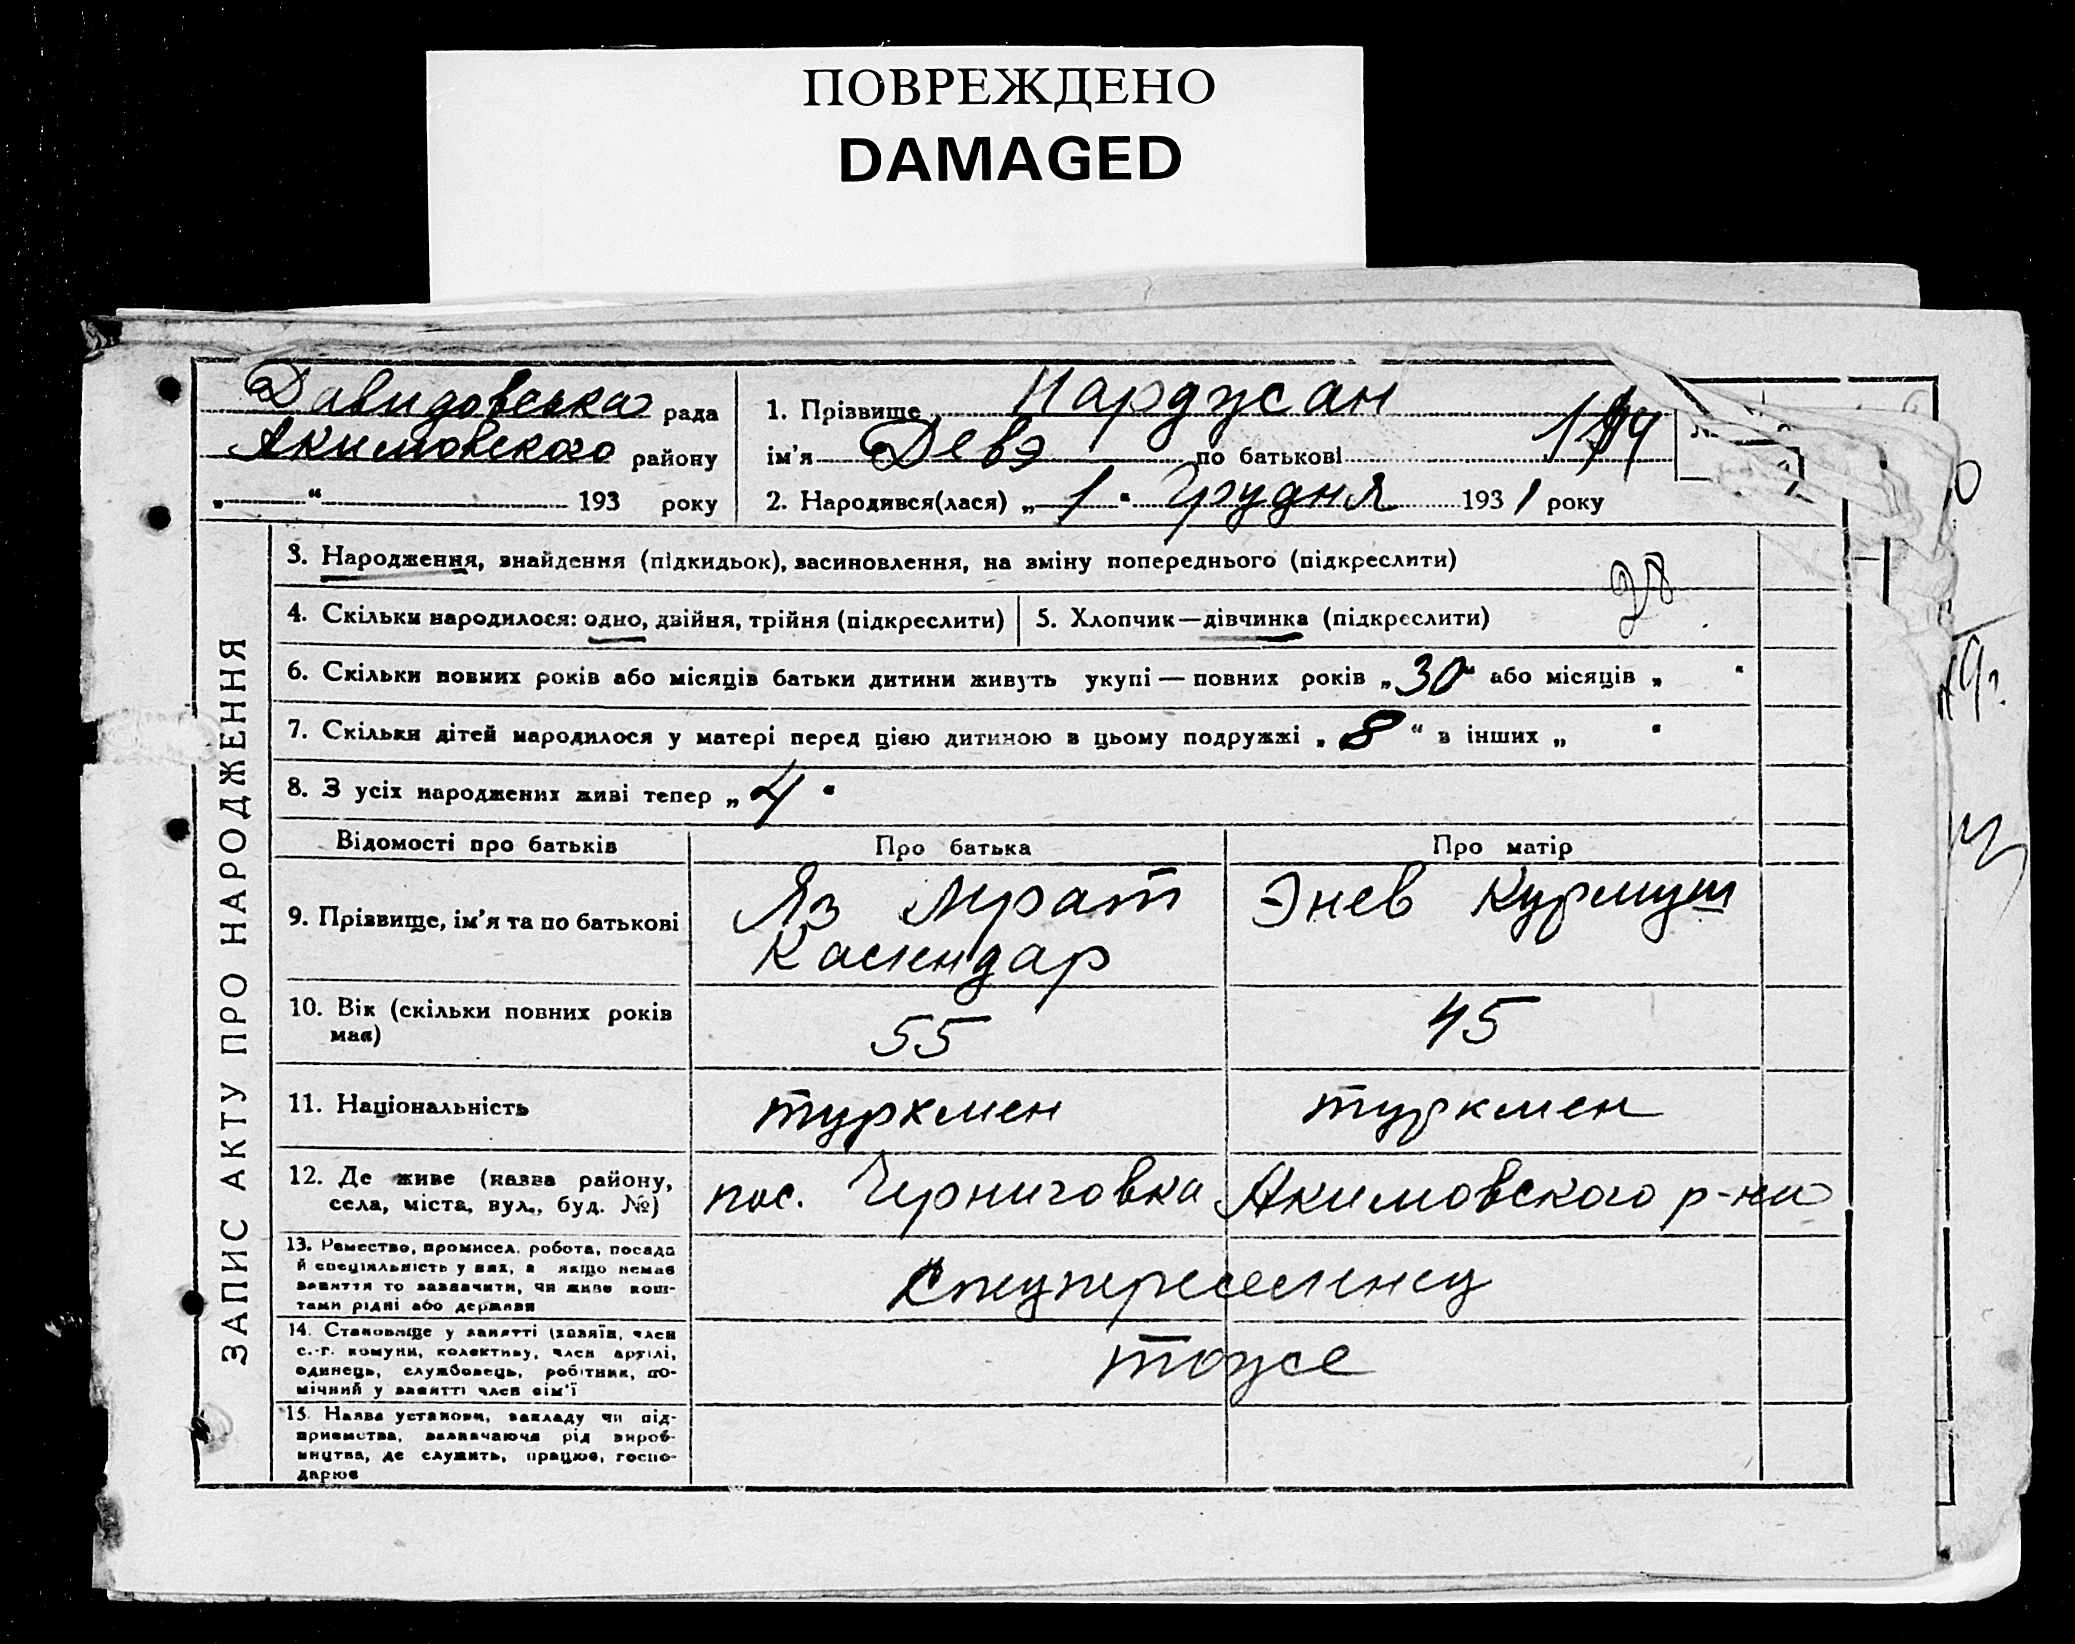 ПОВРЕЖДЕНО
DAMAGED
Давидовська рада
Акимовского району
„ “ 193 року
1. Прізвище Нардусан
ім'я Девэ по батькові
2. Народився(лася) „1“ Грудня 1931 року
ЗАПИС АКТУ ПРО НАРОДЖЕННЯ
3. Народження, знайдення (підкидьок), засиновлення, на зміну попереднього (підкреслити)
28
4. Скільки народилося: одно, двійня, трійня (підкреслити)
5. Хлопчик—дівчинка (підкреслити)
6. Скільки повних років або місяців батьки дитини живуть укупі — повних років „30“ або місяців „ “
7. Скільки дітей народилося у матері перед цією дитиною в цьому подружжі „8“ в інших „ “
8. З усіх народжених живі тепер „4“
Відомості про батьків
Про батька
Про матір
9. Прізвище, ім'я та по батькові
Яз Мрат
Каскндар
Энев Курмуш
10. Вік (скільки повних років
має)
55
45
11. Національність
туркмен
туркмен
12. Де живе (назва району,
села, міста, вул., буд. №)
пос. Черниговка Акимовского р-на
13. Ремество, промисел, робота, посада
й спеціяльність у них, а якщо немає
заняття то зазначити, чи живе кош-
тами рідні або держави
спецпереселенец
14. Становище у занятті (хазяїн, член
с.-г. комуни, колективу, член артілі,
одинець, службовець, робітник, по-
мічний у занятті член сім'ї
тоже
15. Назва установи, закладу чи під-
приємства, зазначаючи рід вироб-
ництва, де служить, працює, госпо-
дарює